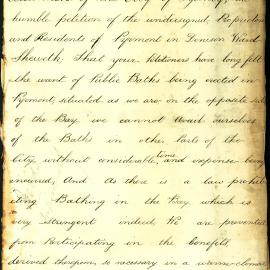 humble petition of the undersigned, Proprietors
and Residents of Pyrmont in Denison Ward
Sheweth, That your Petitioners have long felt
the want of Public Baths being erected in
Pyrmont, situated as we are on the opposite side
of the Bay, we cannot avail ourselves
of the Baths in other Parts of the
City without considerable time and expense being
incurred, And As there is a law prohib
iting Bathing in the Bay which is
very stringent indeed, We are prevented
from Participating in the benefits,
derived therefrom, so necessary in a warm climate